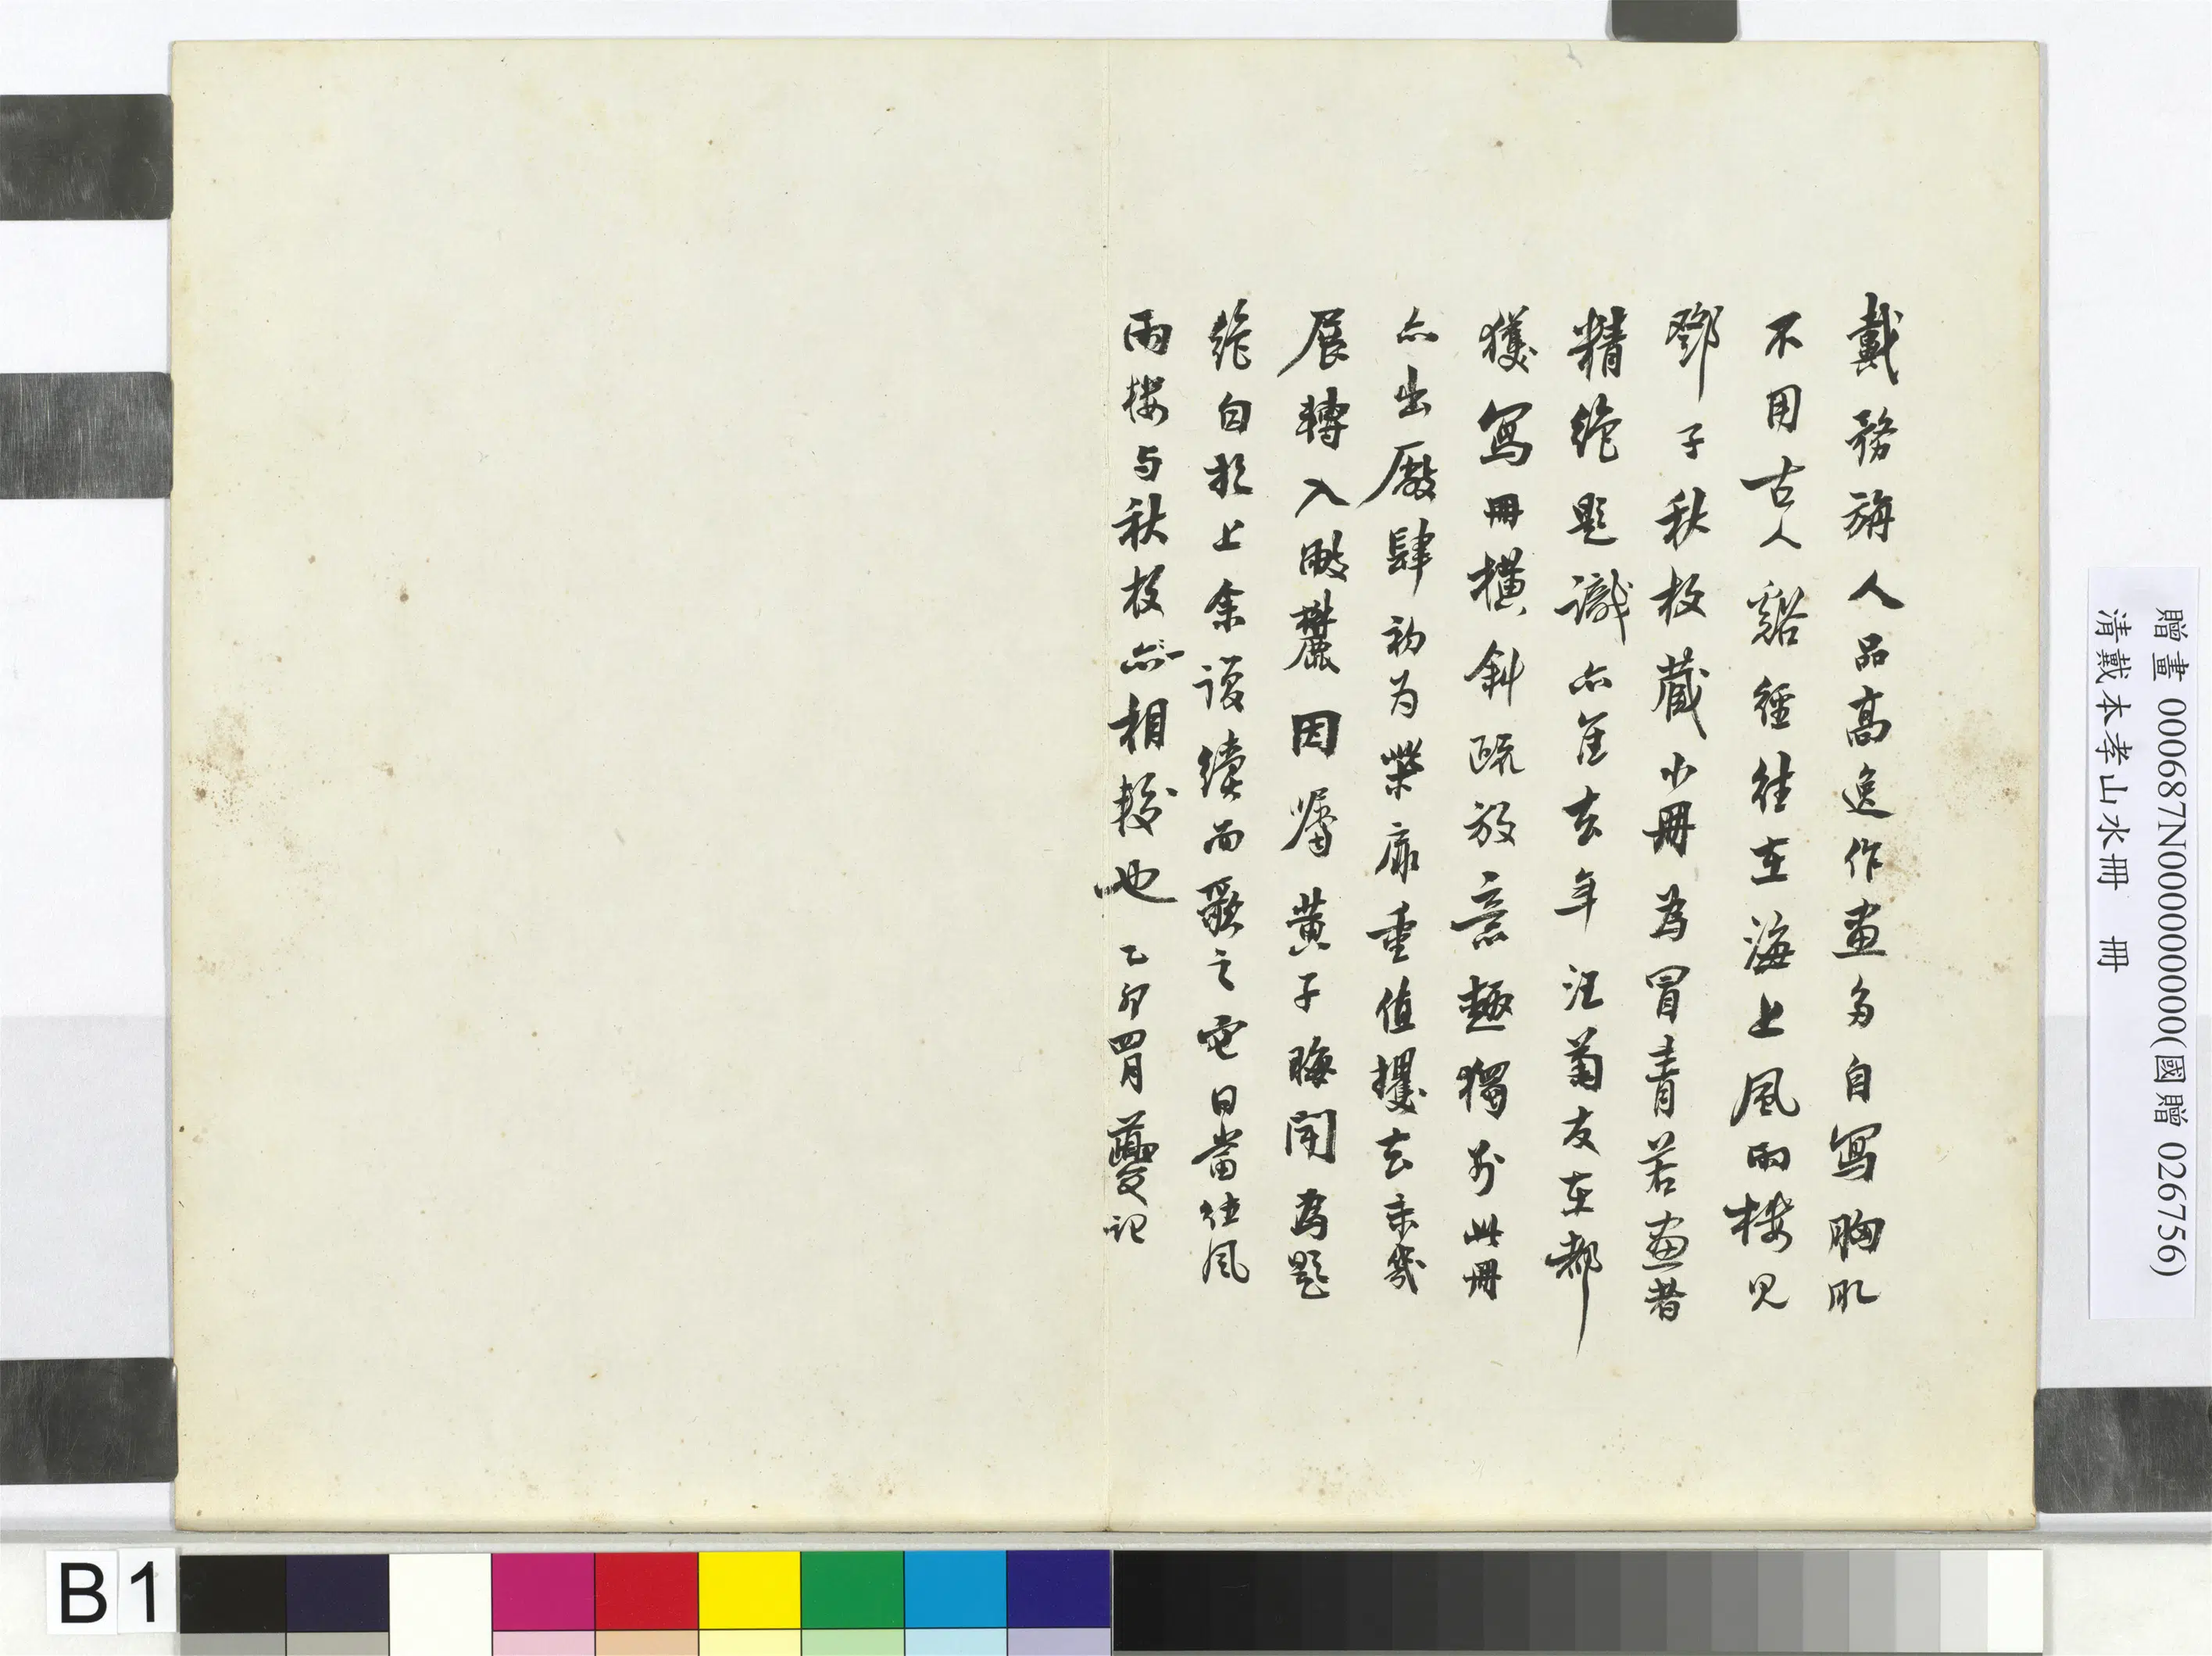 戴務旃人品高逸作畫多自寫胸肊
不用古人谿徑往在海上風雨樓見
鄧子秋枚藏小冊為冒青若畫者
精絶題識亦佳去年汪菊友在都
獲寫冊橫斜疏放意趣獨別此冊
亦出廠肆初为柴庼重值攫去未幾
展轉入畹麓因囑黃子晦聞為題
絶自於上余復續而歌之它日當使風
雨樓与秋枚亦一相校也 乙卯四月 記
贈畫 000687N000000000(國贈 026756)
清戴本孝山水冊 冊
B 1